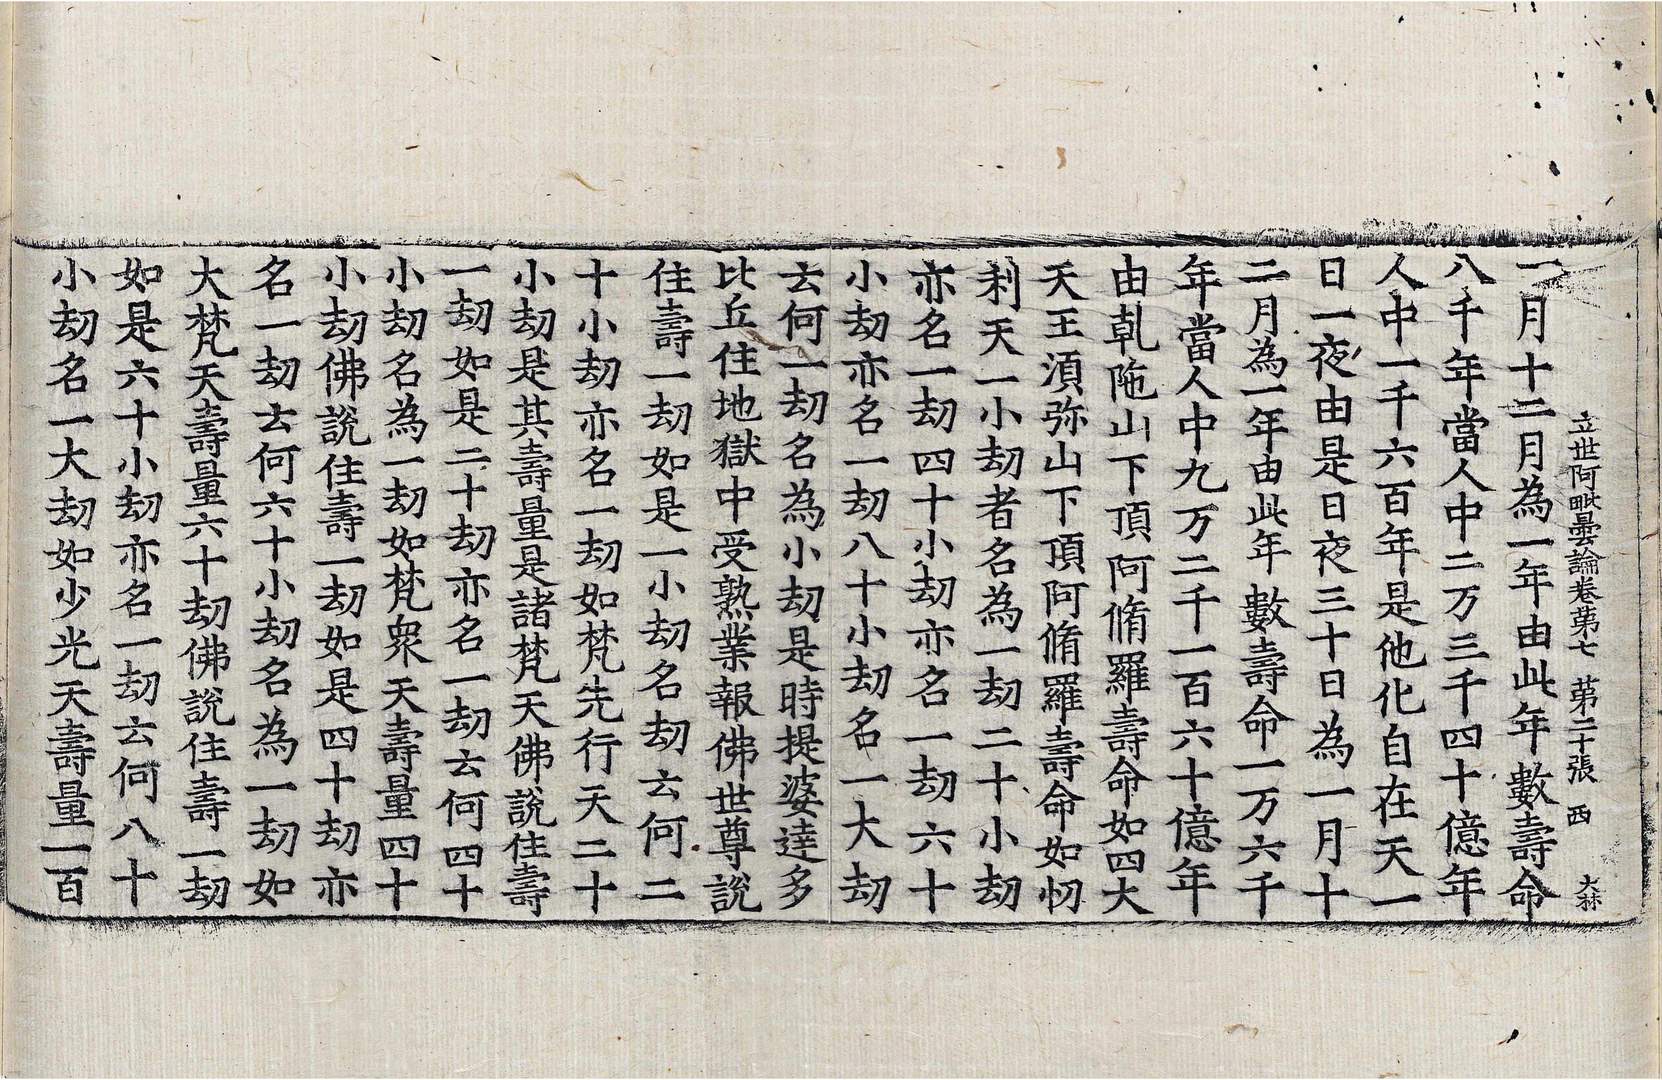 立世阿毗曇論卷苐七　苐二十張　西　大林
一月十二月為一年由此年數壽命
八千年當人中二万三千四十億年
人中一千六百年是他化自在天一
日一夜由是日夜三十日為一月十
二月為一年由此年數壽命一万六千
年當人中九万二千一百六十億年
由乹陁山下頂阿脩羅壽命如四大
天王湏弥山下頂阿脩羅壽命如忉
利天一小劫者名為一劫二十小劫
亦名一劫四十小劫亦名一劫六十
小劫亦名一劫八十小劫名一大劫
云何一劫名為小劫是時提婆達多
比丘住地獄中受熟業報佛世尊說
住壽一劫如是一小劫名劫云何二
十小劫亦名一劫如梵先行天二十
小劫是其壽量是諸梵天佛說住壽
一劫如是二十劫亦名一劫云何四十
小劫名為一劫如梵衆天壽量四十
小劫佛說住壽一劫如是四十劫亦
名一劫云何六十小劫名為一劫如
大梵天壽量六十劫佛說住壽一劫
如是六十小劫亦名一劫云何八十
小劫名一大劫如少光天壽量一百